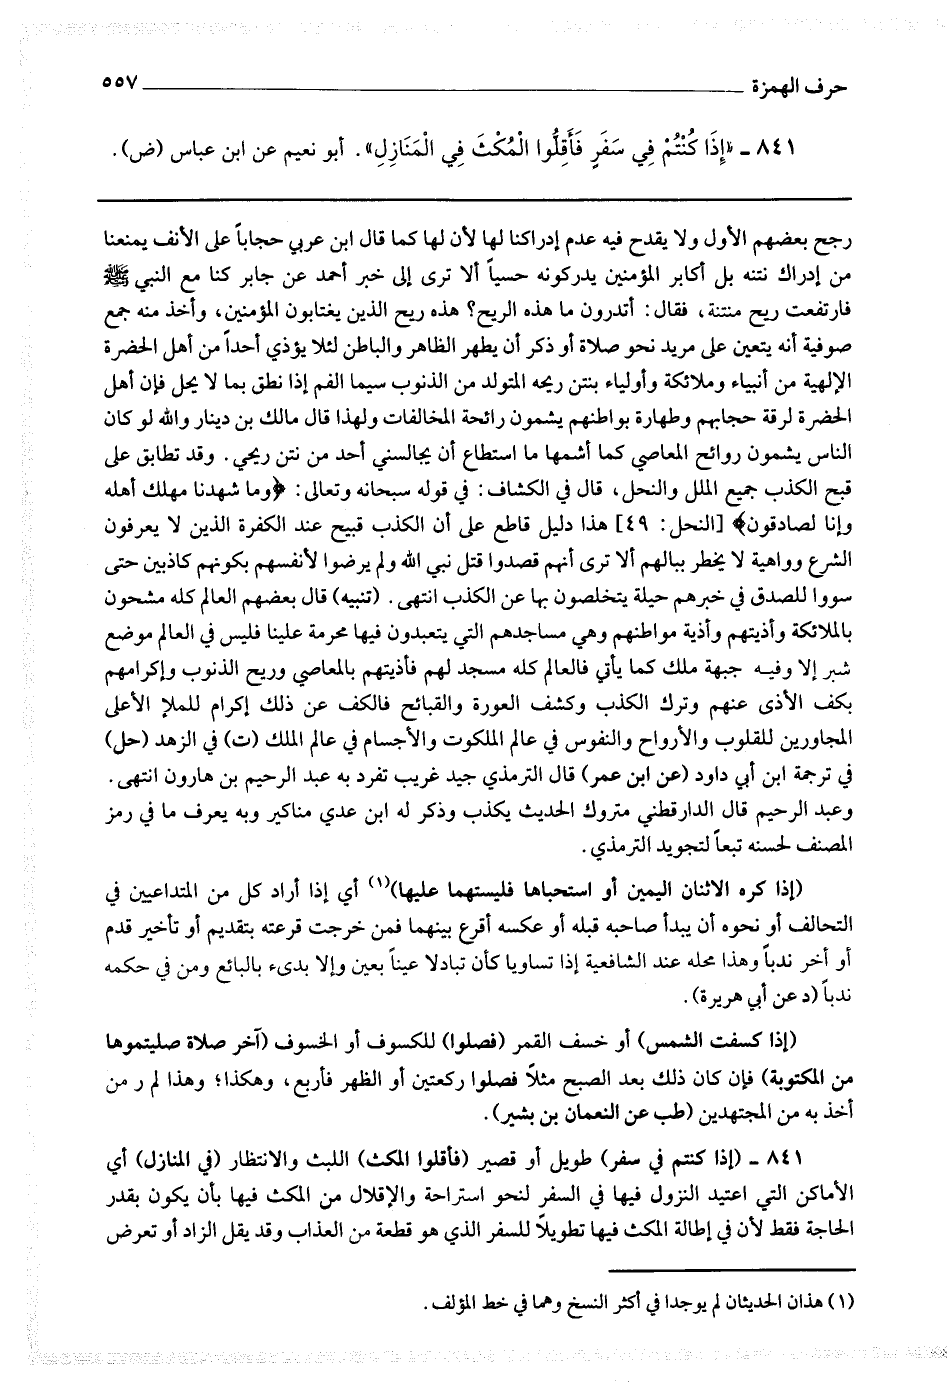 حرف الهمزة ٥٥٧
٨٤١ ـ «إِذَا كُنْتُمْ فِي سَفَرٍ فَأَقِلُّوا الْمُكْثَ فِي الْمَنَازِلِ». أبو نعيم عن ابن عباس (ض).
رجح بعضهم الأول ولا يقدح فيه عدم إدراكنا لها لأن لها كما قال ابن عربي حجاباً على الأنف يمنعنا
من إدراك نتنه بل أكابر المؤمنين يدركونه حسياً ألا ترى إلى خبر أحمد عن جابر كنا مع النبي ﷺ
فارتفعت ريح منتنة، فقال: أتدرون ما هذه الريح؟ هذه ريح الذين يغتابون المؤمنين، وأخذ منه جمع
صوفية أنه يتعين على مريد نحو صلاة أو ذكر أن يطهر الظاهر والباطن لئلا يؤذي أحداً من أهل الحضرة
الإلهية من أنبياء وملائكة وأولياء بنتن ريحه المتولد من الذنوب سيما الفم إذا نطق بما لا يحل فإن أهل
الحضرة لرقة حجابهم وطهارة بواطنهم يشمون رائحة المخالفات ولهذا قال مالك بن دينار والله لو كان
الناس يشمون روائح المعاصي كما أشمها ما استطاع أن يجالسني أحد من نتن ريحي. وقد تطابق على
قبح الكذب جميع الملل والنحل، قال في الكشاف: في قوله سبحانه وتعالى: ﴿وما شهدنا مهلك أهله
وإنا لصادقون﴾ [النحل: ٤٩] هذا دليل قاطع على أن الكذب قبيح عند الكفرة الذين لا يعرفون
الشرع وواهية لا يخطر ببالهم ألا ترى أنهم قصدوا قتل نبي الله ولم يرضوا لأنفسهم بكونهم كاذبين حتى
سووا للصدق في خبرهم حيلة يتخلصون بها عن الكذب انتهى. (تنبيه) قال بعضهم العالم كله مشحون
بالملائكة وأذيتهم وأذية مواطنهم وهي مساجدهم التي يتعبدون فيها محرمة علينا فليس في العالم موضع
شبر إلا وفيه جبهة ملك كما يأتي فالعالم كله مسجد لهم فأذيتهم بالمعاصي وريح الذنوب وإكرامهم
بكف الأذى عنهم وترك الكذب وكشف العورة والقبائح فالكف عن ذلك إكرام للملإ الأعلى
المجاورين للقلوب والأرواح والنفوس في عالم الملكوت والأجسام في عالم الملك (ت) في الزهد (حل)
في ترجمة ابن أبي داود (عن ابن عمر) قال الترمذي جيد غريب تفرد به عبد الرحيم بن هارون انتهى.
وعبد الرحيم قال الدارقطني متروك الحديث يكذب وذكر له ابن عدي مناكير وبه يعرف ما في رمز
المصنف لحسنه تبعاً لتجويد الترمذي.
(إذا كره الاثنان اليمين أو استحباها فليستهما عليها)(١) أي إذا أراد كل من المتداعيين في
التحالف أو نحوه أن يبدأ صاحبه قبله أو عكسه أقرع بينهما فمن خرجت قرعته بتقديم أو تأخير قدم
أو أخر ندباً وهذا محله عند الشافعية إذا تساويا كأن تبادلا عيناً بعين وإلا بدىء بالبائع ومن في حكمه
ندباً (د عن أبي هريرة).
(إذا كسفت الشمس) أو خسف القمر (فصلوا) للكسوف أو الخسوف (آخر صلاة صليتموها
من المكتوبة) فإن كان ذلك بعد الصبح مثلاً فصلوا ركعتين أو الظهر فأربع، وهكذا؛ وهذا لم ر من
أخذ به من المجتهدين (طب عن النعمان بن بشير).
٨٤١ ـ (إذا كنتم في سفر) طويل أو قصير (فأقلوا المكث) اللبث والانتظار (في المنازل) أي
الأماكن التي اعتيد النزول فيها في السفر لنحو استراحة والإقلال من المكث فيها بأن يكون بقدر
الحاجة فقط لأن في إطالة المكث فيها تطويلاً للسفر الذي هو قطعة من العذاب وقد يقل الزاد أو تعرض
(١) هذان الحديثان لم يوجدا في أكثر النسخ وهما في خط المؤلف.